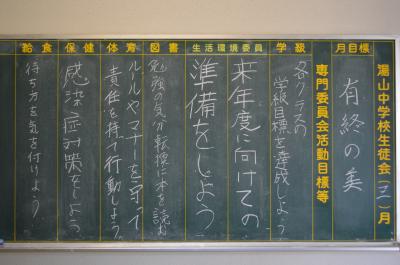 湯山中学校生徒会(三)月
専門委員会活動目標等
月目標
有終の美
学級
各クラスの
学級目標を達成しよう
生活環境委員
来年度に向けての
準備をしよう
図書
勉強の気分転換に本を読もう
体育
ルールやマナーを守って
責任を持って行動しよう
保健
感染症対策をしよう
給食
待ち方を気を付けよう